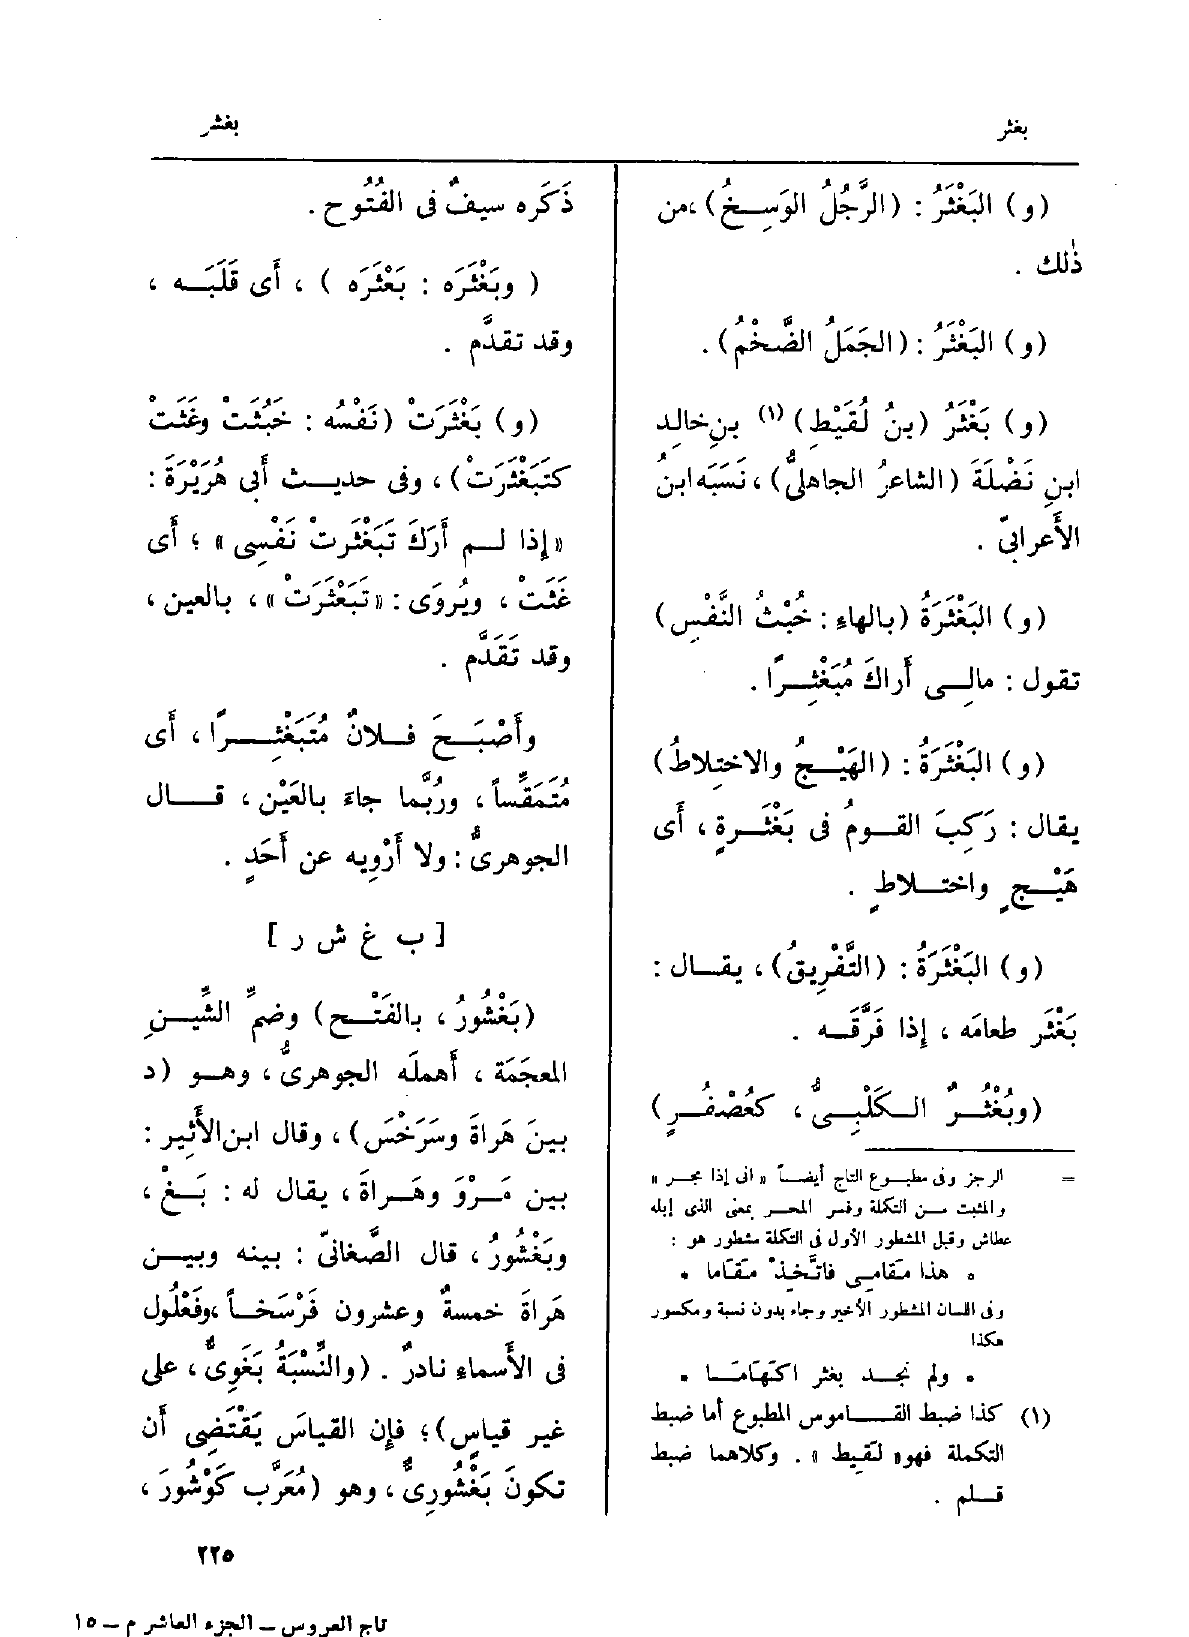 بغثر
بغثر
(و) البَغْثَرُ : (الرَّجُلُ الوَسِخُ)، من
ذٰلك .
(و) البَغْثَرُ : (الجَمَلُ الضَّخْمُ) .
(و) بَغْثَرُ (بنُ لُقَيْط) (١) بنِ خالِد
ابنِ نَضْلَةَ (الشاعرُ الجاهلىُّ)، نَسَبَه ابنُ
الأَعرابىّ .
(و) البَغْثَرَةُ (بالهاءِ : خُبْثُ النَّفْسِ)
تقول : مالِى أَراكَ مُبَغْثِرًا .
(و) البَغْثَرَةُ : (الهَيْجُ والاختِلاطُ)
يقال : رَكِبَ القومُ فى بَغْثَرةٍ ، أَى
هَيْجٍ واختلاطٍ .
(و) البَغْثَرَةُ : (التَّفْرِيقُ)، يقال :
بَغْثَر طعامَه ، إِذا فَرَّقَه .
(وبُغْثُرٌ الكَلْبِىُّ، كعُصْفُرٍ)
= الرجز وفى مطبوع التاج أيضاً « انى إذا مجر »
والمثبت من التكملة وفسر المحر بمعنى الذى إبله
عطاش وقبل المشطور الأول فى التكملة مشطور هو :
• هذا مَقامِى فاتَّخِذْ مَقَاما •
وفى اللسان المشطور الأخير وجاء بدون نسبة ومكسور
هكذا
• ولم نجد بغثر اكَهَامَا •
(١) كذا ضبط القاموس المطبوع أما ضبط
التكملة فهو« لَقِيط » . وكلاهما ضبط
قلم .
ذَكَره سيفٌ فى الفُتُوح .
( وبَغْثَرَه : بَعْثَرَه ) ، أَى قَلَبَه ،
وقد تقدَّم .
(و) بَغْثَرَتْ (نَفْسُه : خَبُثَتْ وغَثَتْ
كتَبَغْثَرَتْ)، وفى حديث أَبى هُرَيْرَةَ :
«إِذا لم أَرَكَ تَبَغْثَرتْ نَفْسِى» ؛ أَى
غَثَتْ ، ويُروَى : «تَبَعْثَرَتْ»، بالعين ،
وقد تَقَدَّم .
وأَصْبَحَ فلانٌ مُتَبَغْثِرًا ، أَى
مُتَمَقِّساً، ورُبَّما جاءَ بالعَيْن ، قال
الجوهرىُّ : ولا أَرْوِيه عن أَحَدٍ .
[ ب غ ش ر ]
(بَغْشُورُ ، بالفَتْح) وضمِّ الشِّينِ
المعجَمَة ، أَهملَه الجوهرىُّ، وهو (د
بينَ هَراةَ وسَرَخْسَ)، وقال ابن الأَثِير :
بين مَرْوَ وهَراةَ ، يقال له : بَغْ ،
وبَغْشُورُ ، قال الصَّغانىّ : بينه وبين
هَراةَ خمسةٌ وعشرون فَرْسَخاً ،وفَعْلُول
فى الأَسماءِ نادرٌ . (والنِّسْبَةُ بَغَوِىٌّ ، على
غير قياسٍ)؛ فإِن القياسَ يَقْتَضِى أَن
تكونَ بَغْشُورِىٌّ ، وهو (مُعَرَّب كَوْشُورَ ،
٢٢٥
تاج العروس – الجزء العاشر م – ١٥